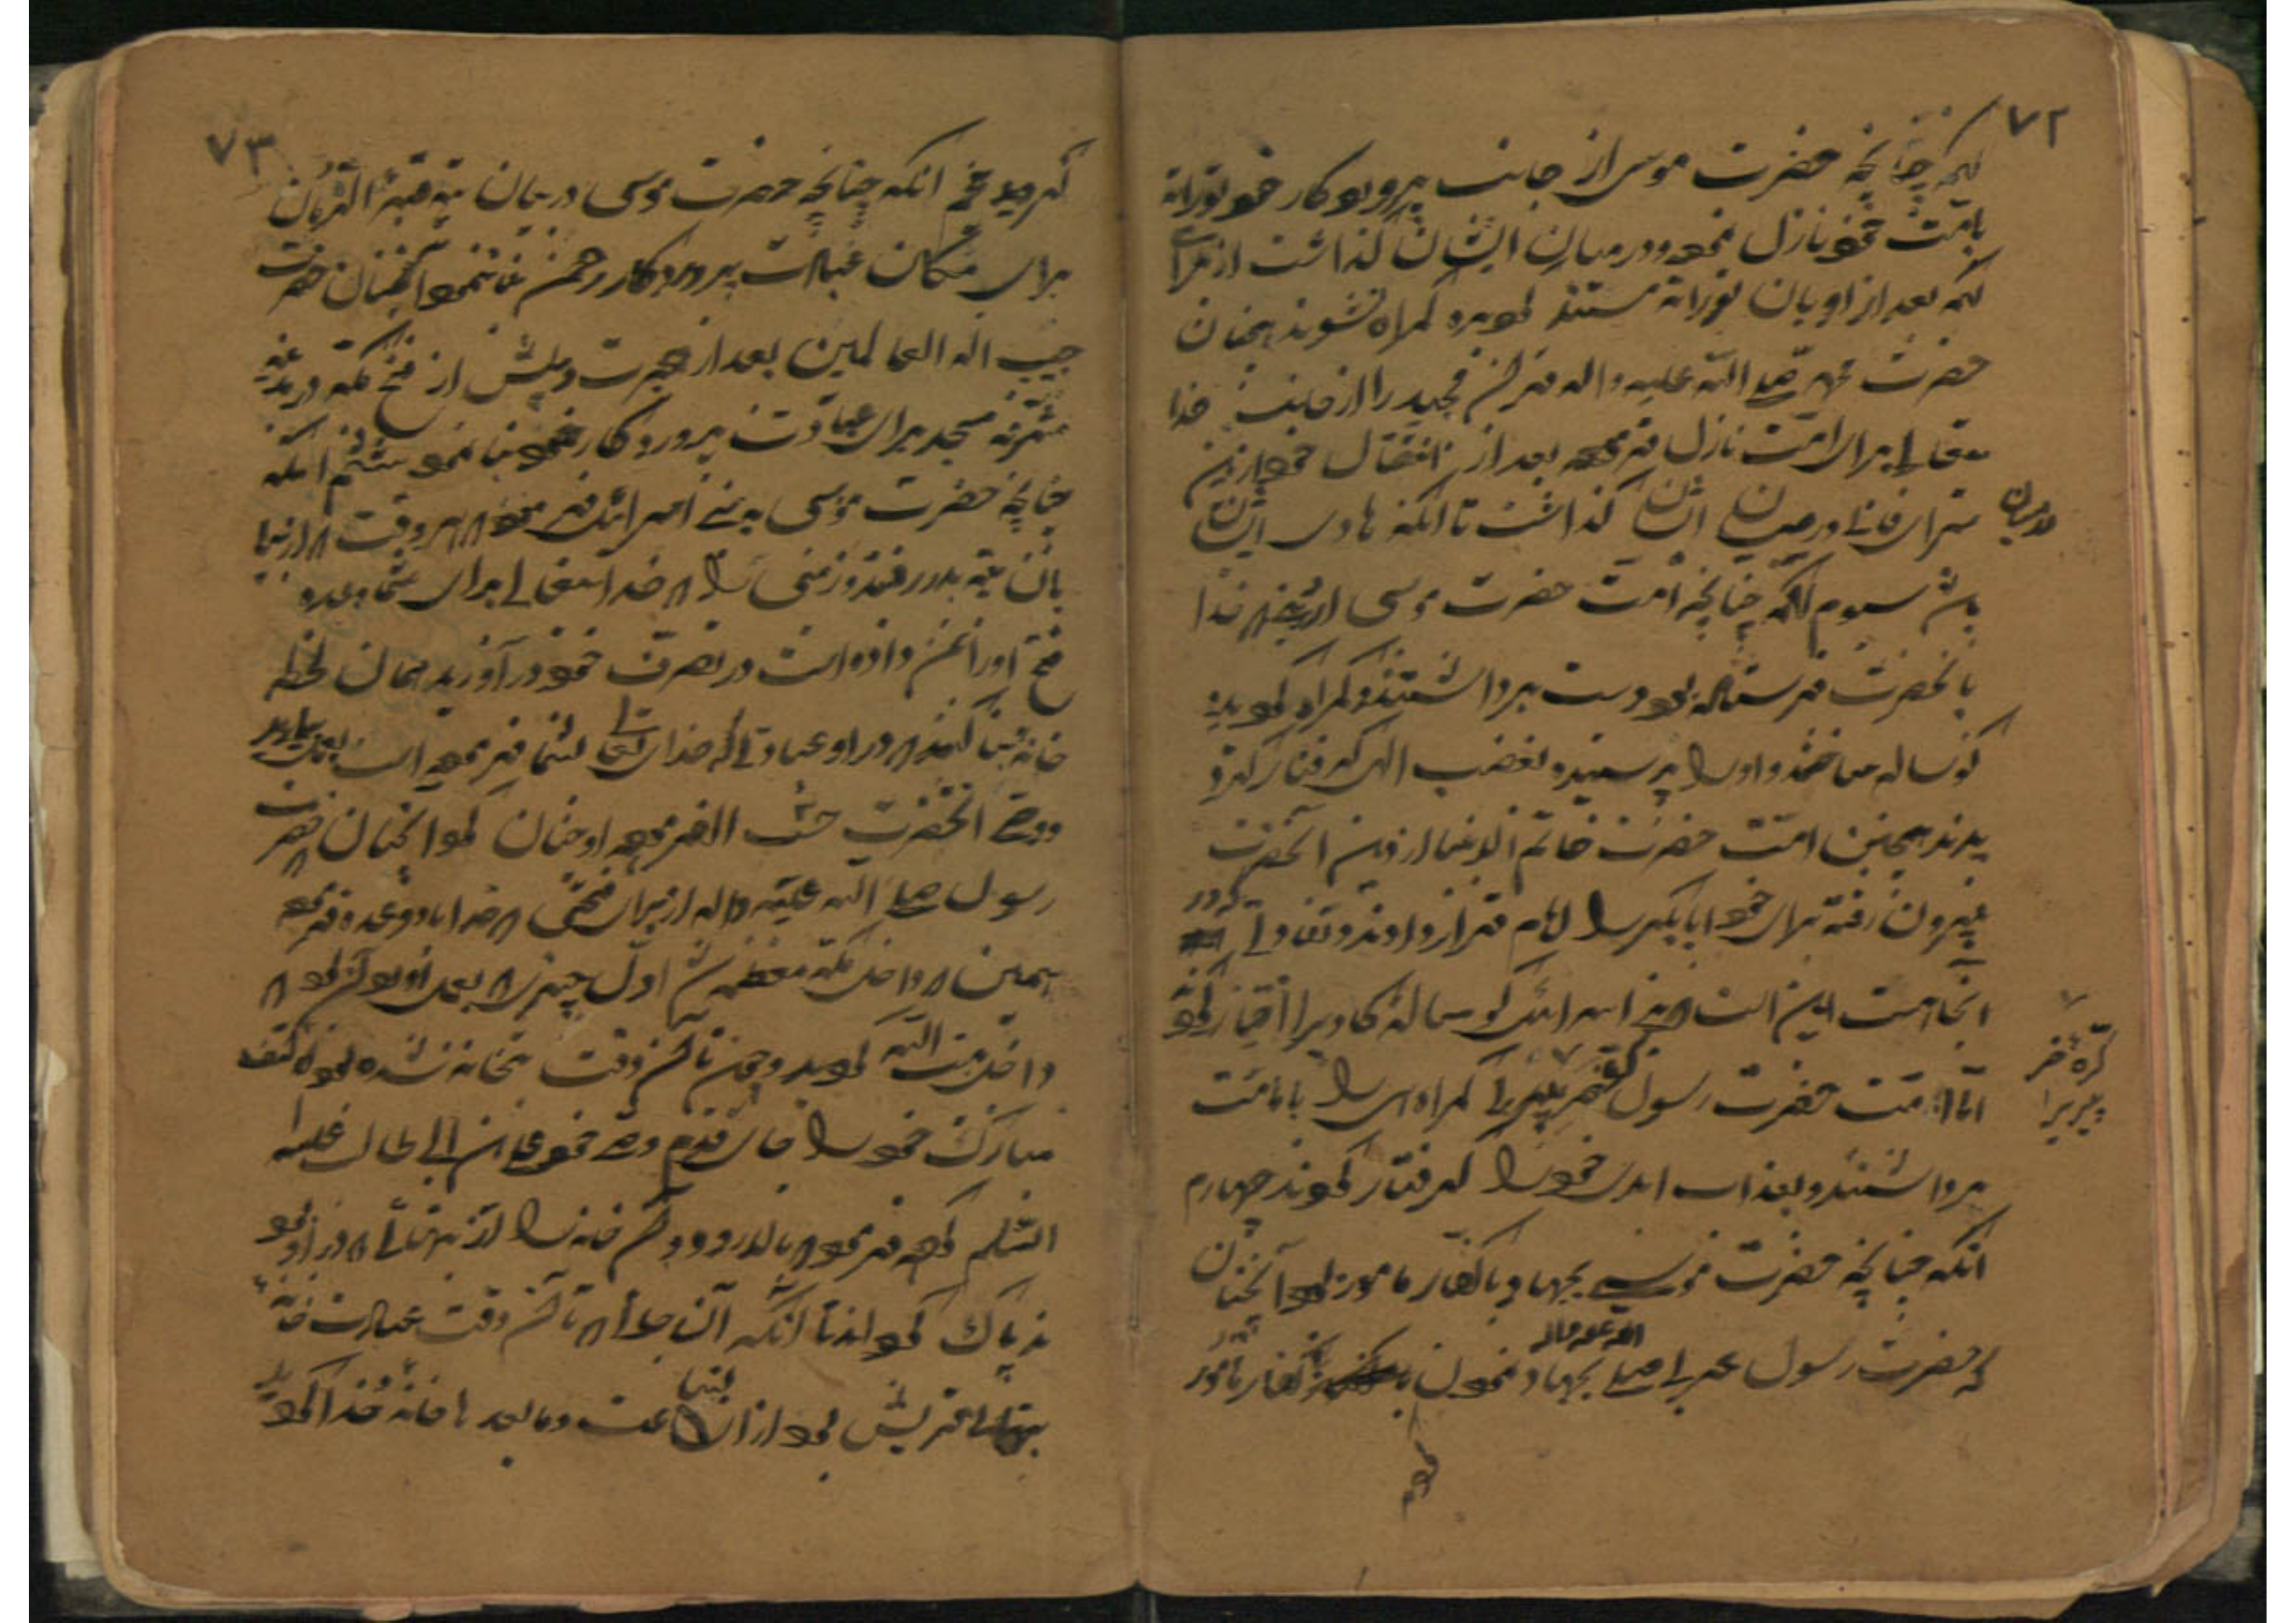 ۷۲
که چنانچه حضرت موسی از جانب پروردگار خود توراة
بامت خود نازل نموده و در میان ایشان گذاشت از برای
که بعد از او بان توراة مستند بوده گمراه نشوند همچنان
حضرت محمد صلی الله علیه و اله قران مجید را از جانب خدا
یتعالی برای امت نازل فرموده بعد از انتقال خود ازین
سرای فانی در میان ایشان گذاشت تا انکه هادی ایشان
در میان
باشد سیوم انکه چنانچه امت حضرت موسی از خدا
بانحضرت فرستاده بود دست برداشتند و گمراه گردیده
گوساله ساختند و او را پرستیدند بغضب الهی گرفتار گردی
دیدند همچنین امت حضرت خاتم الانبیا از دین انحضرت
بیرون رفته برای خود ابابکر را امام قرار دادند و تفاوتی که در
انجا هست این است که بنی اسرائیل گوساله گاو را اختیار کرد
اما امت حضرت رسول گمراهی را بامامت
کره خر
پیر را
برداشتند و بعذاب ابدی خود را گرفتار نمودند چهارم
انکه چنانچه حضرت موسی بجهاد با کفار مامور بود انچنان
که حضرت رسول عربی صلی الله علیه واله بجهاد نمودن با کفار مامور
۷۳
گردید پنجم انکه چنانچه حضرت موسی در میان تیه قبة الزمان
برای مکان عبادت پروردگار رحمن بنا نمود انچنان حضرت
حبیب اله العالمین بعد از هجرت و پیش از فتح مکه در مدینه
مشرفه مسجد برای عبادت پروردگار خود بنا نمود ششم انکه
چنانچه حضرت موسی به بنی اسرائیل فرمود که هر وقت که از میان
بان تیه بدر رفتند و زمینی را که خدا یتعالی برای شما وعده
فتح او را بمن داده است در تصرف خود در آورید همان لحظه
خانه بنا کنند که در او عبادتی که خدای تعالی بشما فرموده است بعمل بیاورید
و وصی انحضرت حسب الفرموده او چنان نمود انچنان حضرت
رسول صلی الله علیه و اله از برای فتحی که خدا باو وعده فرموده
همین که داخل مکه معظمه شد اول چیزی که بعمل اورد آن بود که
داخل بیت الله گردید و چون تا آن وقت بتخانه شده بود کتف
مبارک خود را جای قدم وصی خود علی ابن ابی طالب علیه
السلم کرده فرمود که بالا رود و آن خانه را از بتهائی که در او بود
پاک نمودند تا انکه آن جائی که تا آن وقت عبادت خانه
بتهای قریش بود از ان ساعت و ما بعد ها خانه خدا گردید